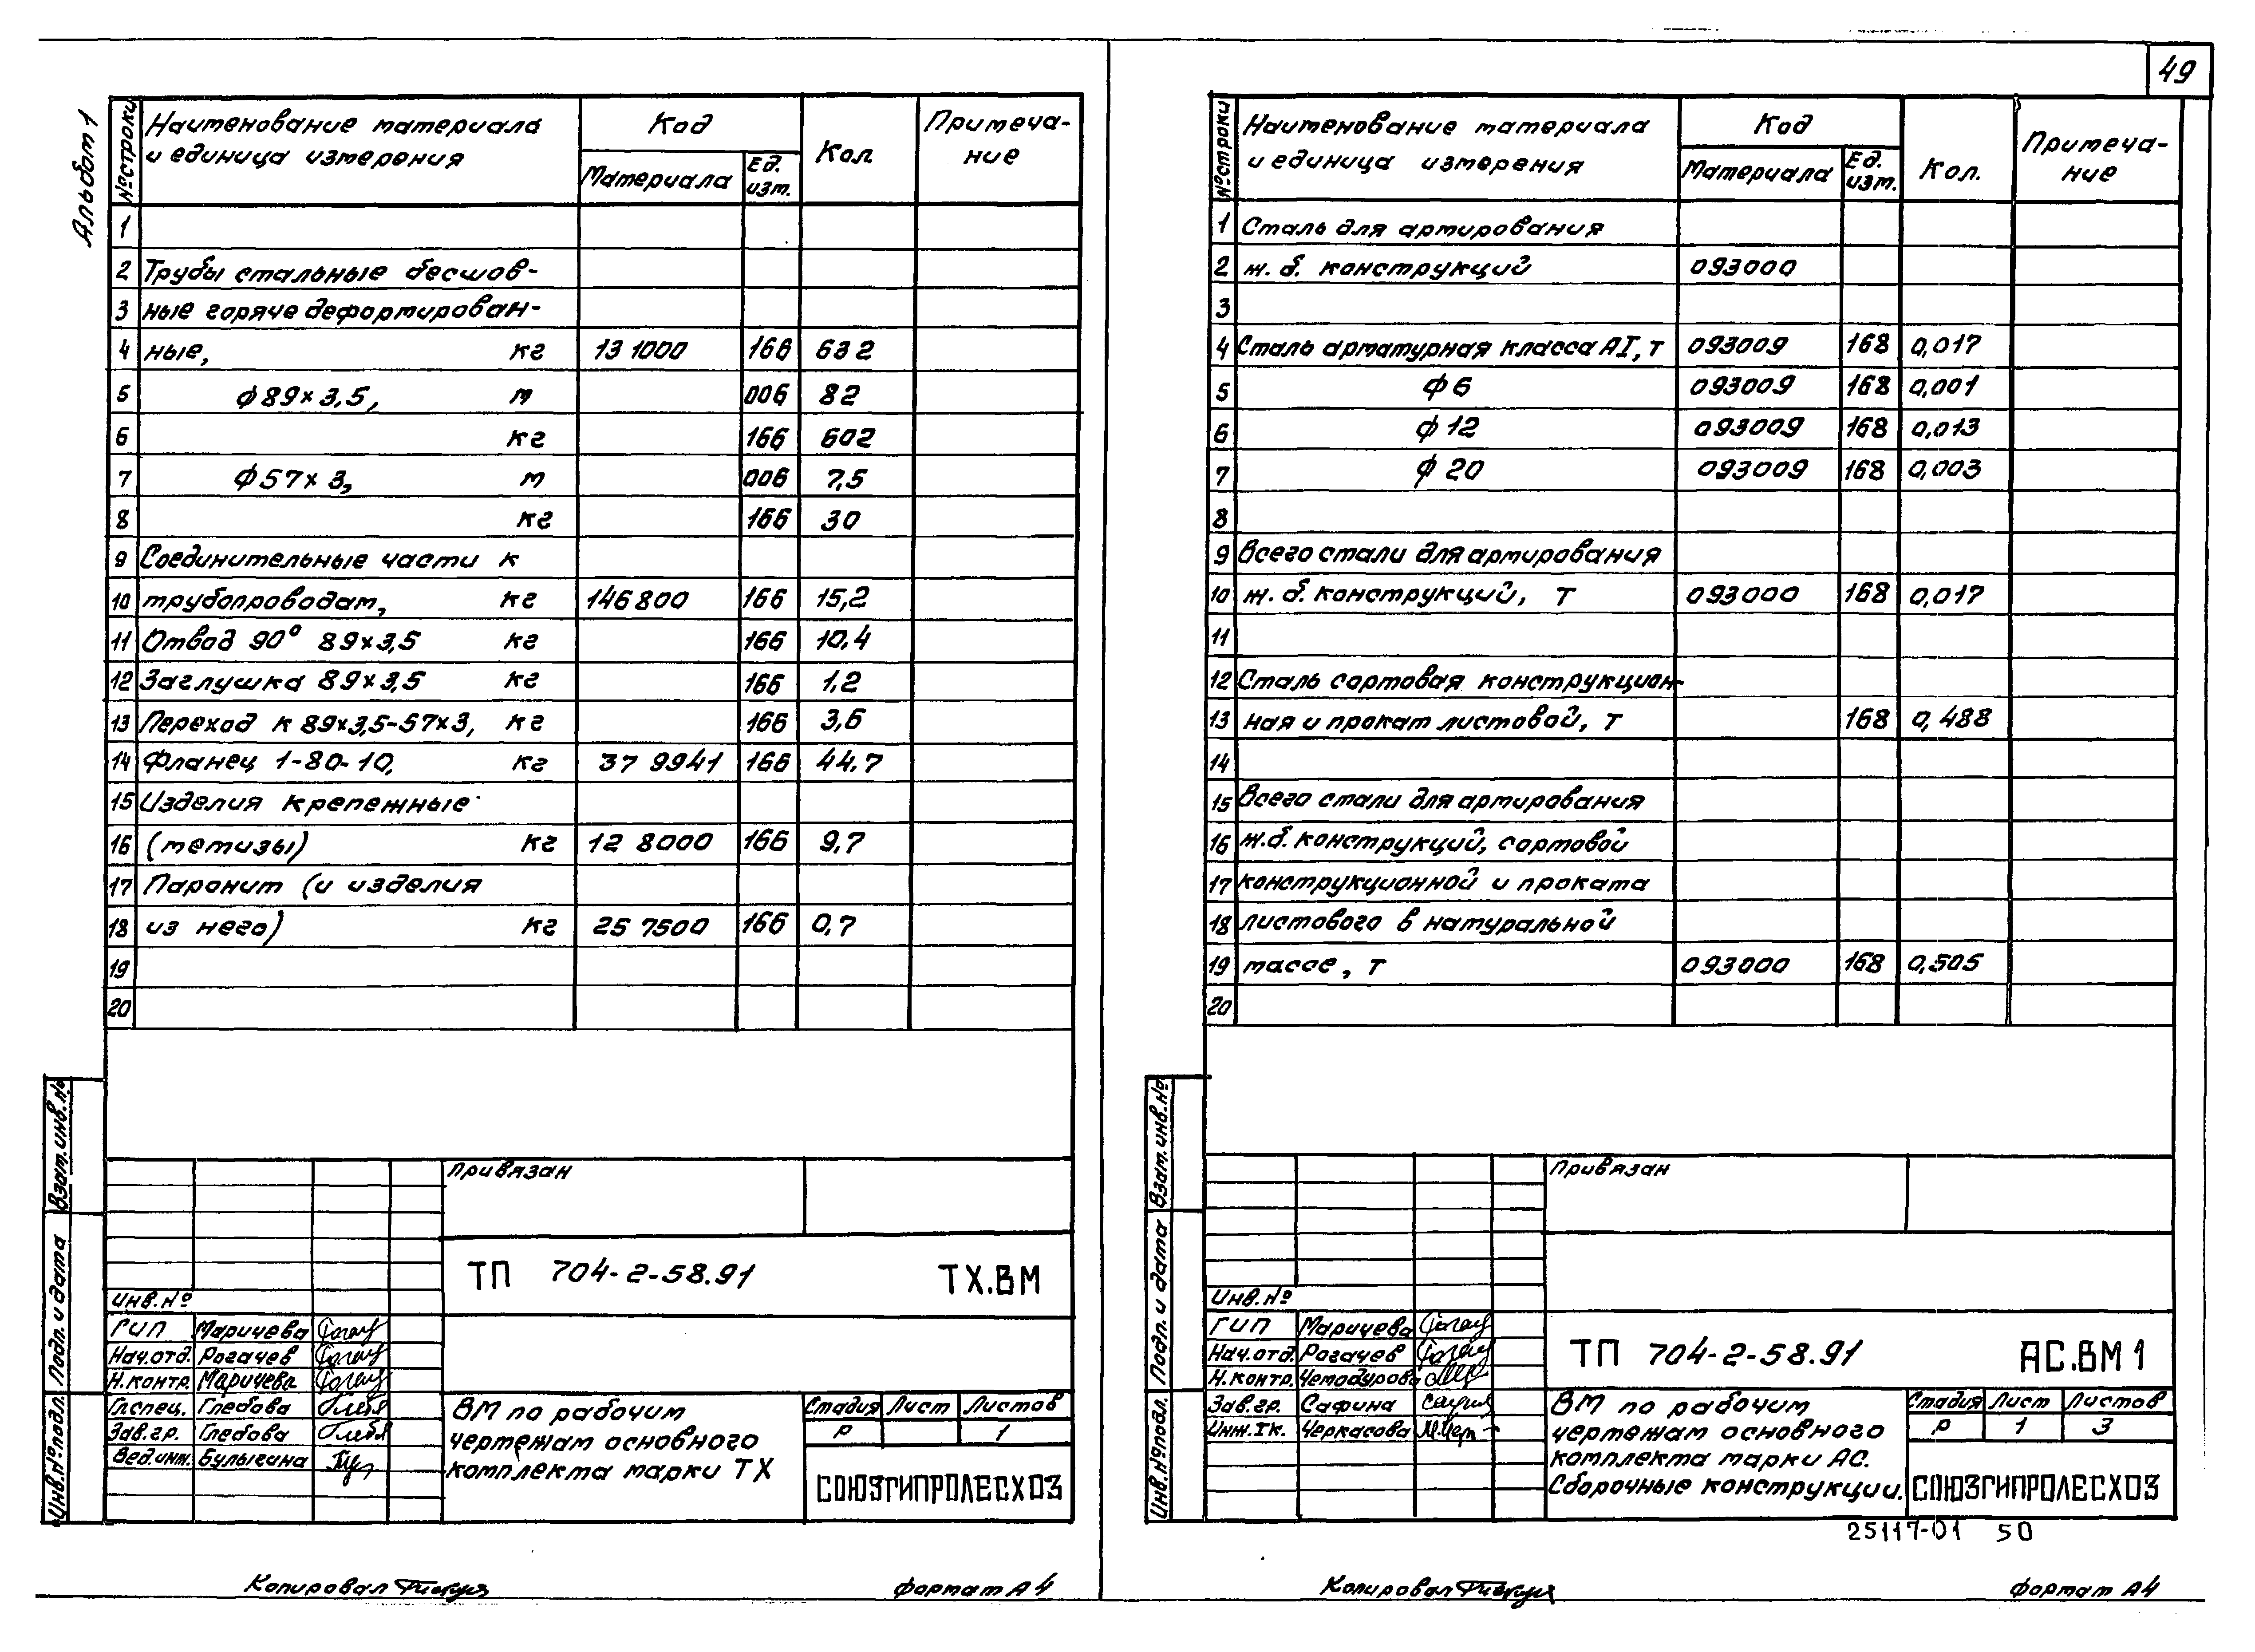 49
Альбом 1
№ строки | Наименование материала и единица измерения | Код | Кол. | Примеча-ние
Материала | Ед. изм.
1
2 Трубы стальные бесшов-
3 ные горяче деформирован-
4 ные, кг 13 1000 166 632
5 ф89×3,5, м 006 82
6 кг 166 602
7 ф57×3, м 006 7,5
8 кг 166 30
9 Соединительные части к
10 трубопроводам, кг 146800 166 15,2
11 Отвод 90° 89×3,5 кг 166 10,4
12 Заглушка 89×3,5 кг 166 1,2
13 Переход к 89×3,5-57×3, кг 166 3,6
14 Фланец 1-80-10, кг 37 9941 166 44,7
15 Изделия крепежные
16 (метизы) кг 12 8000 166 9,7
17 Паронит (и изделия
18 из него) кг 25 7500 166 0,7
19
20
Взам. инв. №
Подп. и дата
Инв. № подл.
Привязан
ТП 704-2-58.91 ТХ.ВМ
Инв. №
ГИП Маричева
Нач.отд. Рогачев
Н.контр. Маричева
Гл.спец. Глебова
Зав.гр. Глебова
Вед.инж. Булыгина
ВМ по рабочим
чертежам основного
комплекта марки ТХ
Стадия Лист Листов
Р 1
СОЮЗГИПРОЛЕСХОЗ
Копировал
Формат А4
№ строки | Наименование материала и единица измерения | Код | Кол. | Примеча-ние
Материала | Ед. изм.
1 Сталь для армирования
2 ж. б. конструкций 093000
3
4 Сталь арматурная класса АI, т 093009 168 0,017
5 ф 6 093009 168 0,001
6 ф 12 093009 168 0,013
7 ф 20 093009 168 0,003
8
9 Всего стали для армирования
10 ж. б. конструкций, т 093000 168 0,017
11
12 Сталь сортовая конструкцион-
13 ная и прокат листовой, т 168 0,488
14
15 Всего стали для армирования
16 ж.б. конструкций, сортовой
17 конструкционной и проката
18 листового в натуральной
19 массе, т 093000 168 0,505
20
Взам. инв. №
Подп. и дата
Инв. № подл.
Привязан
Инв. №
ГИП Маричева
Нач.отд. Рогачев
Н.контр. Чемодурова
Зав.гр. Сафина
Инж.Iк. Черкасова
ТП 704-2-58.91 АС.ВМ1
ВМ по рабочим
чертежам основного
комплекта марки АС.
Сборочные конструкции.
Стадия Лист Листов
Р 1 3
СОЮЗГИПРОЛЕСХОЗ
25117-01 50
Копировал
Формат А4